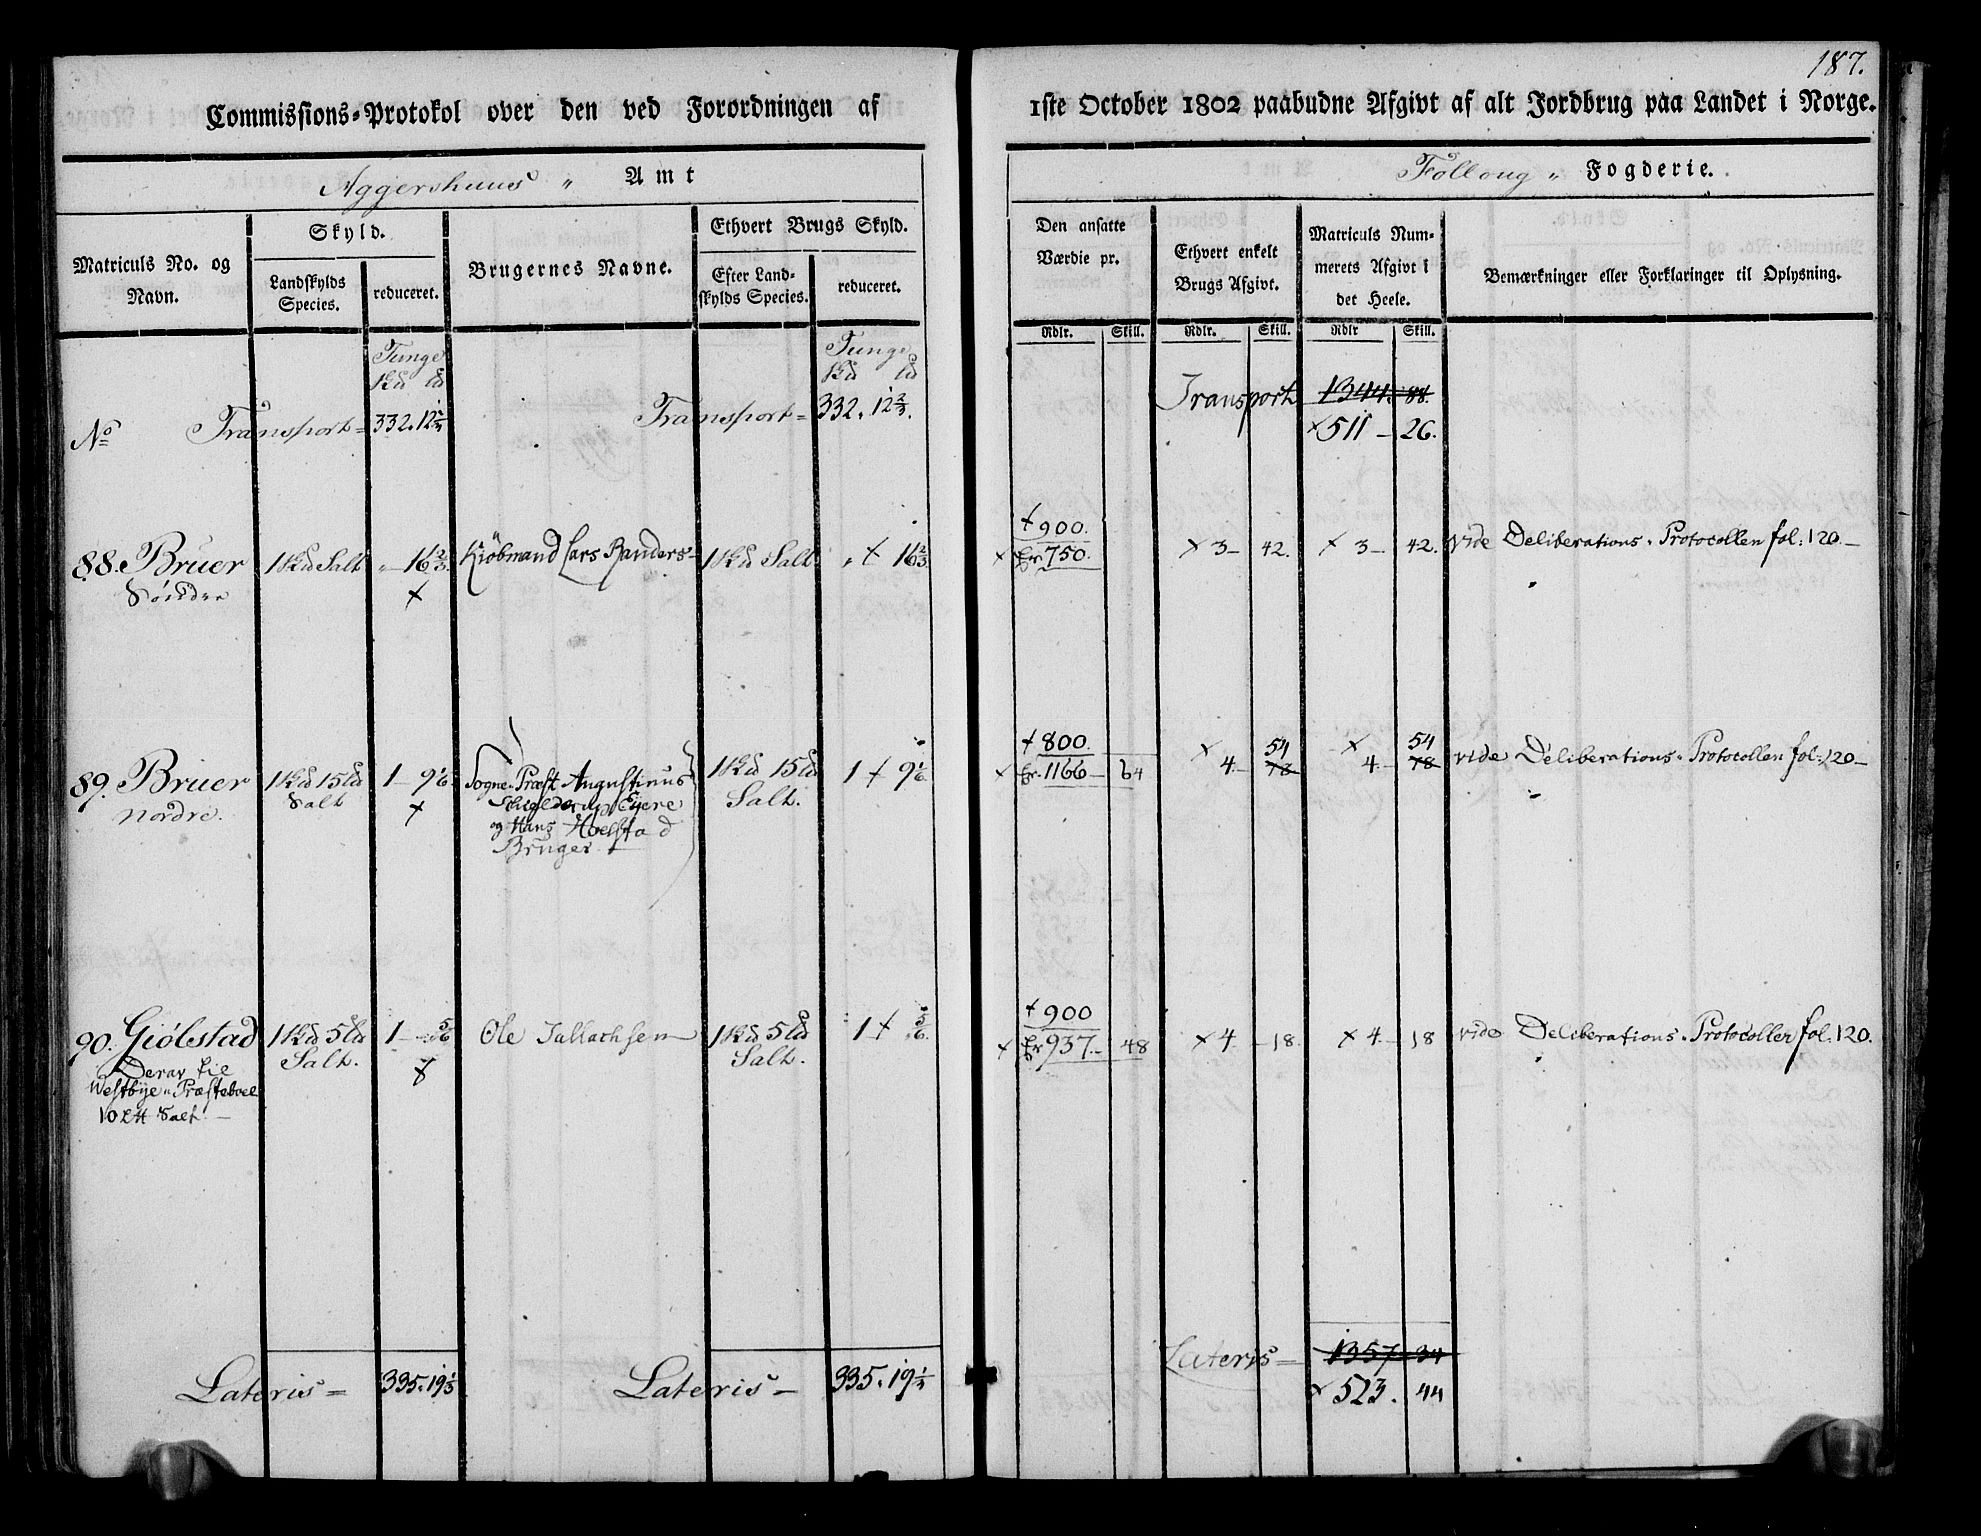 187.
Commissions-Protokol over den ved Forordningen af 1ste October 1802 paabudne Afgivt af alt Jordbrug paa Landet i Norge.
Aggershuus " Amt
Folloug " Fogderie.
Matriculs No. og Navn.
Skyld.
Landskylds Species.
reduceret.
Brugernes Navne.
Ethvert Brugs Skyld.
Efter Landskylds Species.
reduceret.
Den ansatte Værdie pr.
Ethvert enkelt Brugs Afgivt.
Matriculs Nummerets Afgivt i det Heele.
Bemærkninger eller Forklaringer til Oplysning.
Rdlr. Skill. Rdlr. Skill. Rdlr Skill.
Tunge Tunge
No Transport = 332. 12 2/3 Transport = 332. 12 2/3. Transport 1344. 88.
× 511 - 26.
+ 900.
88. Bruer 1 Hd Salt " - 16 2/3. Kiöbmand Lars Randers - 1 Hd Salt. " + 16 2/3 × Er 750. × 3 - 42. × 3 - 42. vide Deliberations-Protocollen fol: 120. -
Söndre
+ 800. 54 54
89. Bruer 1 Hd 15 Ld 1 - 9 1/6 Sogne-Præst Augustinus 1 Hd 15 Ld 1 + 9 1/6. × Er. 1166 - 64 × 4. - 78 × 4. - 78 vide Deliberations-Protocollen fol: 120 -
Nordre. Salt Eyere Salt.
og Hans Hoelstad
Bruger
+ 900
90. Giölstad 1 Hd 5 Ld 1 - 5/6 Ole 1 Hd 5 Ld 1 + 5/6. × Er 937. - 48 × 4 - 18. × 4. - 18 vide Deliberations-Protocollen fol. 120.
Salt. Salt.
Derav til
Westbye Præsteboel
10 Salt. -
Lateris = 335. 19 1/3 Lateris - 335. 19 1/3 Lateris = 1357 - 34
× 523. 44